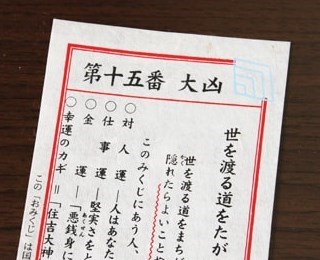 第十五番 大凶
世を渡る道をたが
世を渡る道をまち
隠れたらよいこと
このみくじにあう人、
○対人運―人はあなた
○仕事運―堅実さをと
○金運―「悪銭身に
あくせん
○幸運のカギ=「住吉大神
この「おみくじ」は国